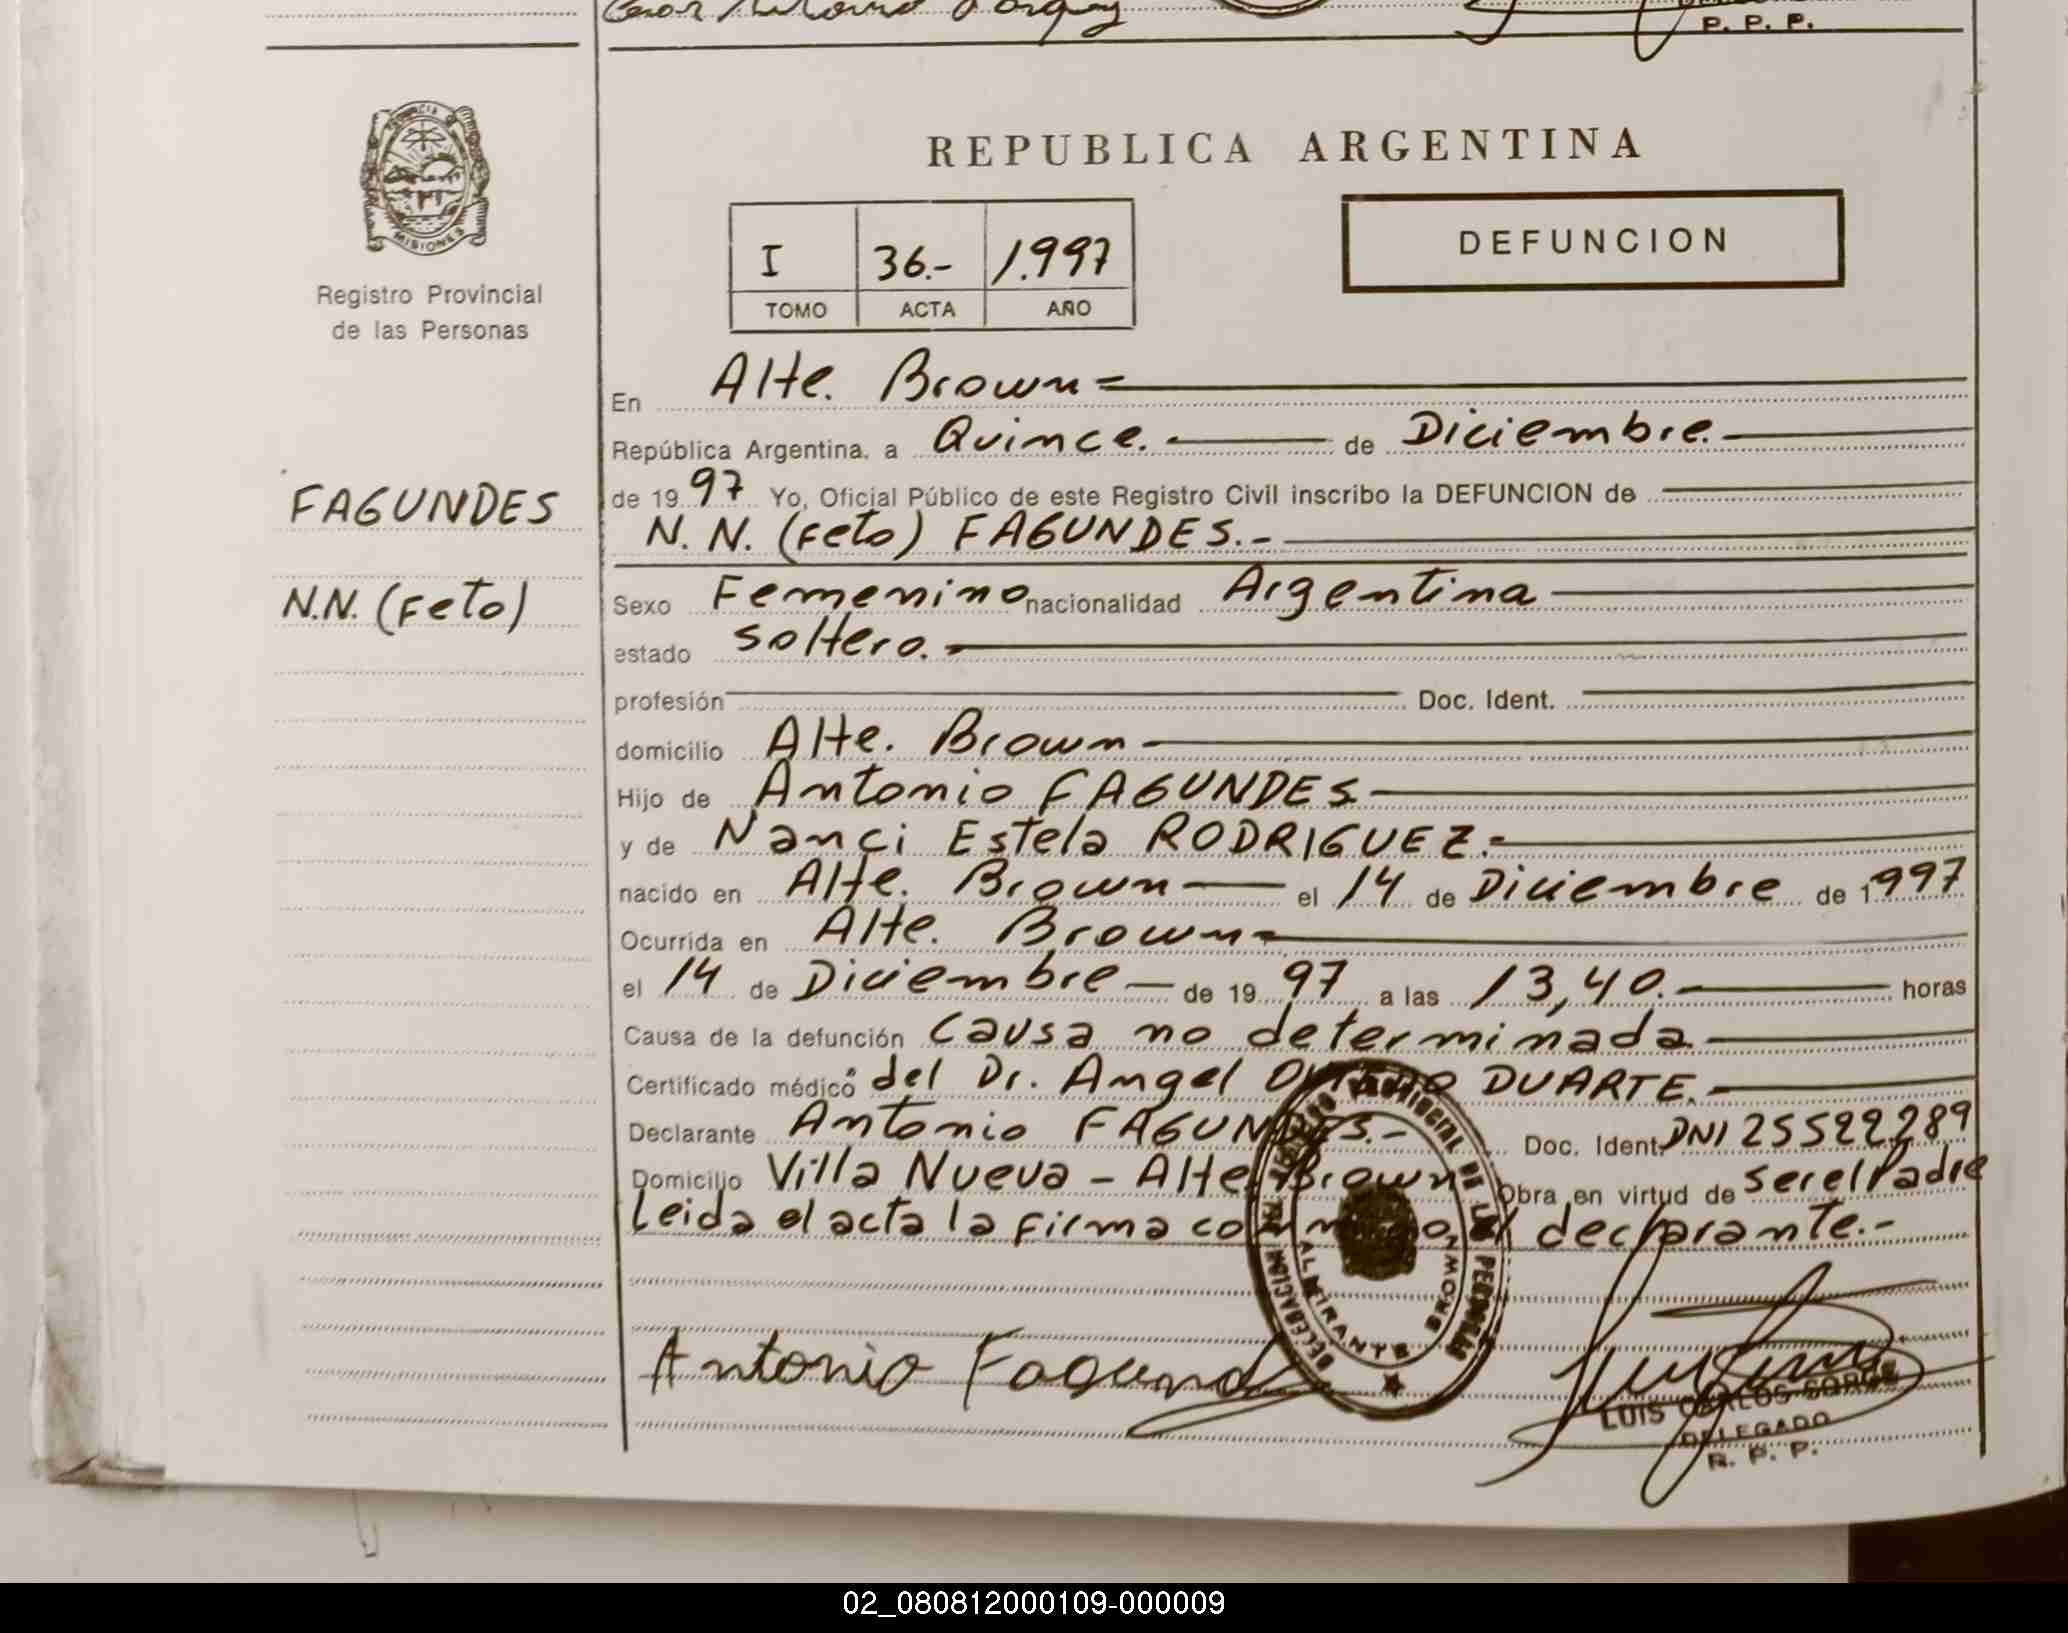 P. P. P.
PROVINCIA
MISIONES
Registro Provincial
de las Personas
FAGUNDES
N.N. (Feto)
REPUBLICA ARGENTINA
I 36.- 1.997
TOMO ACTA AÑO
DEFUNCION
En Alte. Brown =
República Argentina, a Quince. de Diciembre.
de 1997 Yo, Oficial Público de este Registro Civil inscribo la DEFUNCION de
N. N. (Feto) FAGUNDES.-
Sexo Femenino nacionalidad Argentina
estado soltero.
profesión Doc. Ident.
domicilio Alte. Brown
Hijo de Antonio FAGUNDES
y de Nanci Estela RODRIGUEZ.-
nacido en Alte. Brown el 14 de Diciembre de 1997
Ocurrida en Alte. Brown
el 14 de Diciembre de 1997 a las 13,40. horas
Causa de la defunción Causa no determinada
Certificado médico del Dr. Angel DUARTE.
Declarante Antonio FAGUNDES.- Doc. Ident. DNI 25522289
Domicilio Villa Nueva - Alte. Brown Obra en virtud de ser el Padre
Leida el acta la firma conmigo el declarante.-
REGISTRO PROVINCIAL DE LAS PERSONAS
DELEGACION
ALMIRANTE BROWN
Antonio Fagundes
LUIS CARLOS
DELEGADO
R. P. P.
02_080812000109-000009